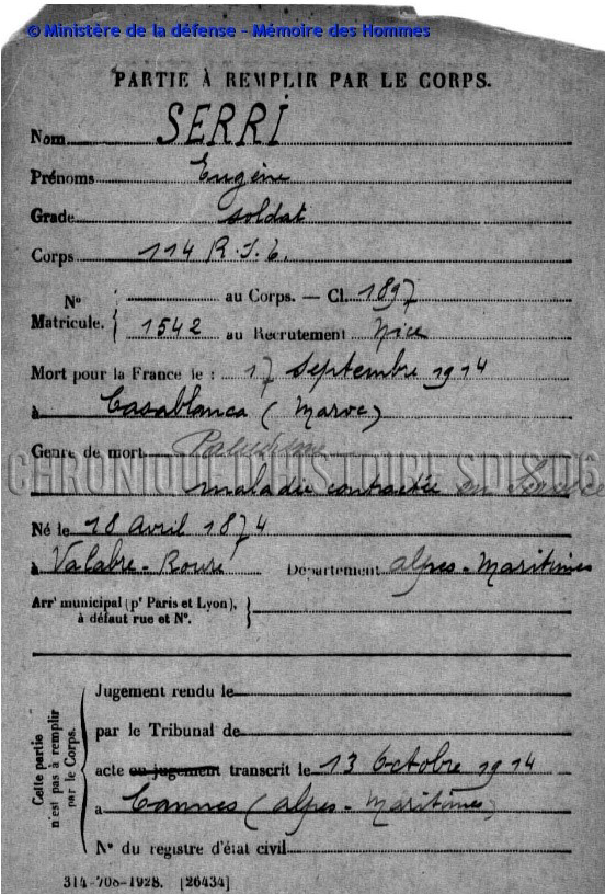 © Ministère de la défense - Mémoire des Hommes
PARTIE À REMPLIR PAR LE CORPS.
Nom SERRI
Prénoms Eugène
Grade soldat
Corps 114 R.I.t.
N° Matricule. { au Corps. — Cl. 1897
1542 au Recrutement Nice
Mort pour la France le : 17 Septembre 1914
à Casablanca (Maroc)
Genre de mort Paludisme
CHRONIQUES D'HISTOIRES DES 06
maladie contractée en Service
Né le 18 Avril 1874
à Valabre-Roure Département Alpes-Maritimes
Arrt municipal (pr Paris et Lyon), }
à défaut rue et N°.
Cette partie n'est pas à remplir par le Corps. {
Jugement rendu le
par le Tribunal de
acte ou jugement transcrit le 13 Octobre 1914
à Cannes (Alpes-Maritimes)
N° du registre d'état civil
314-708-1928. [26434]